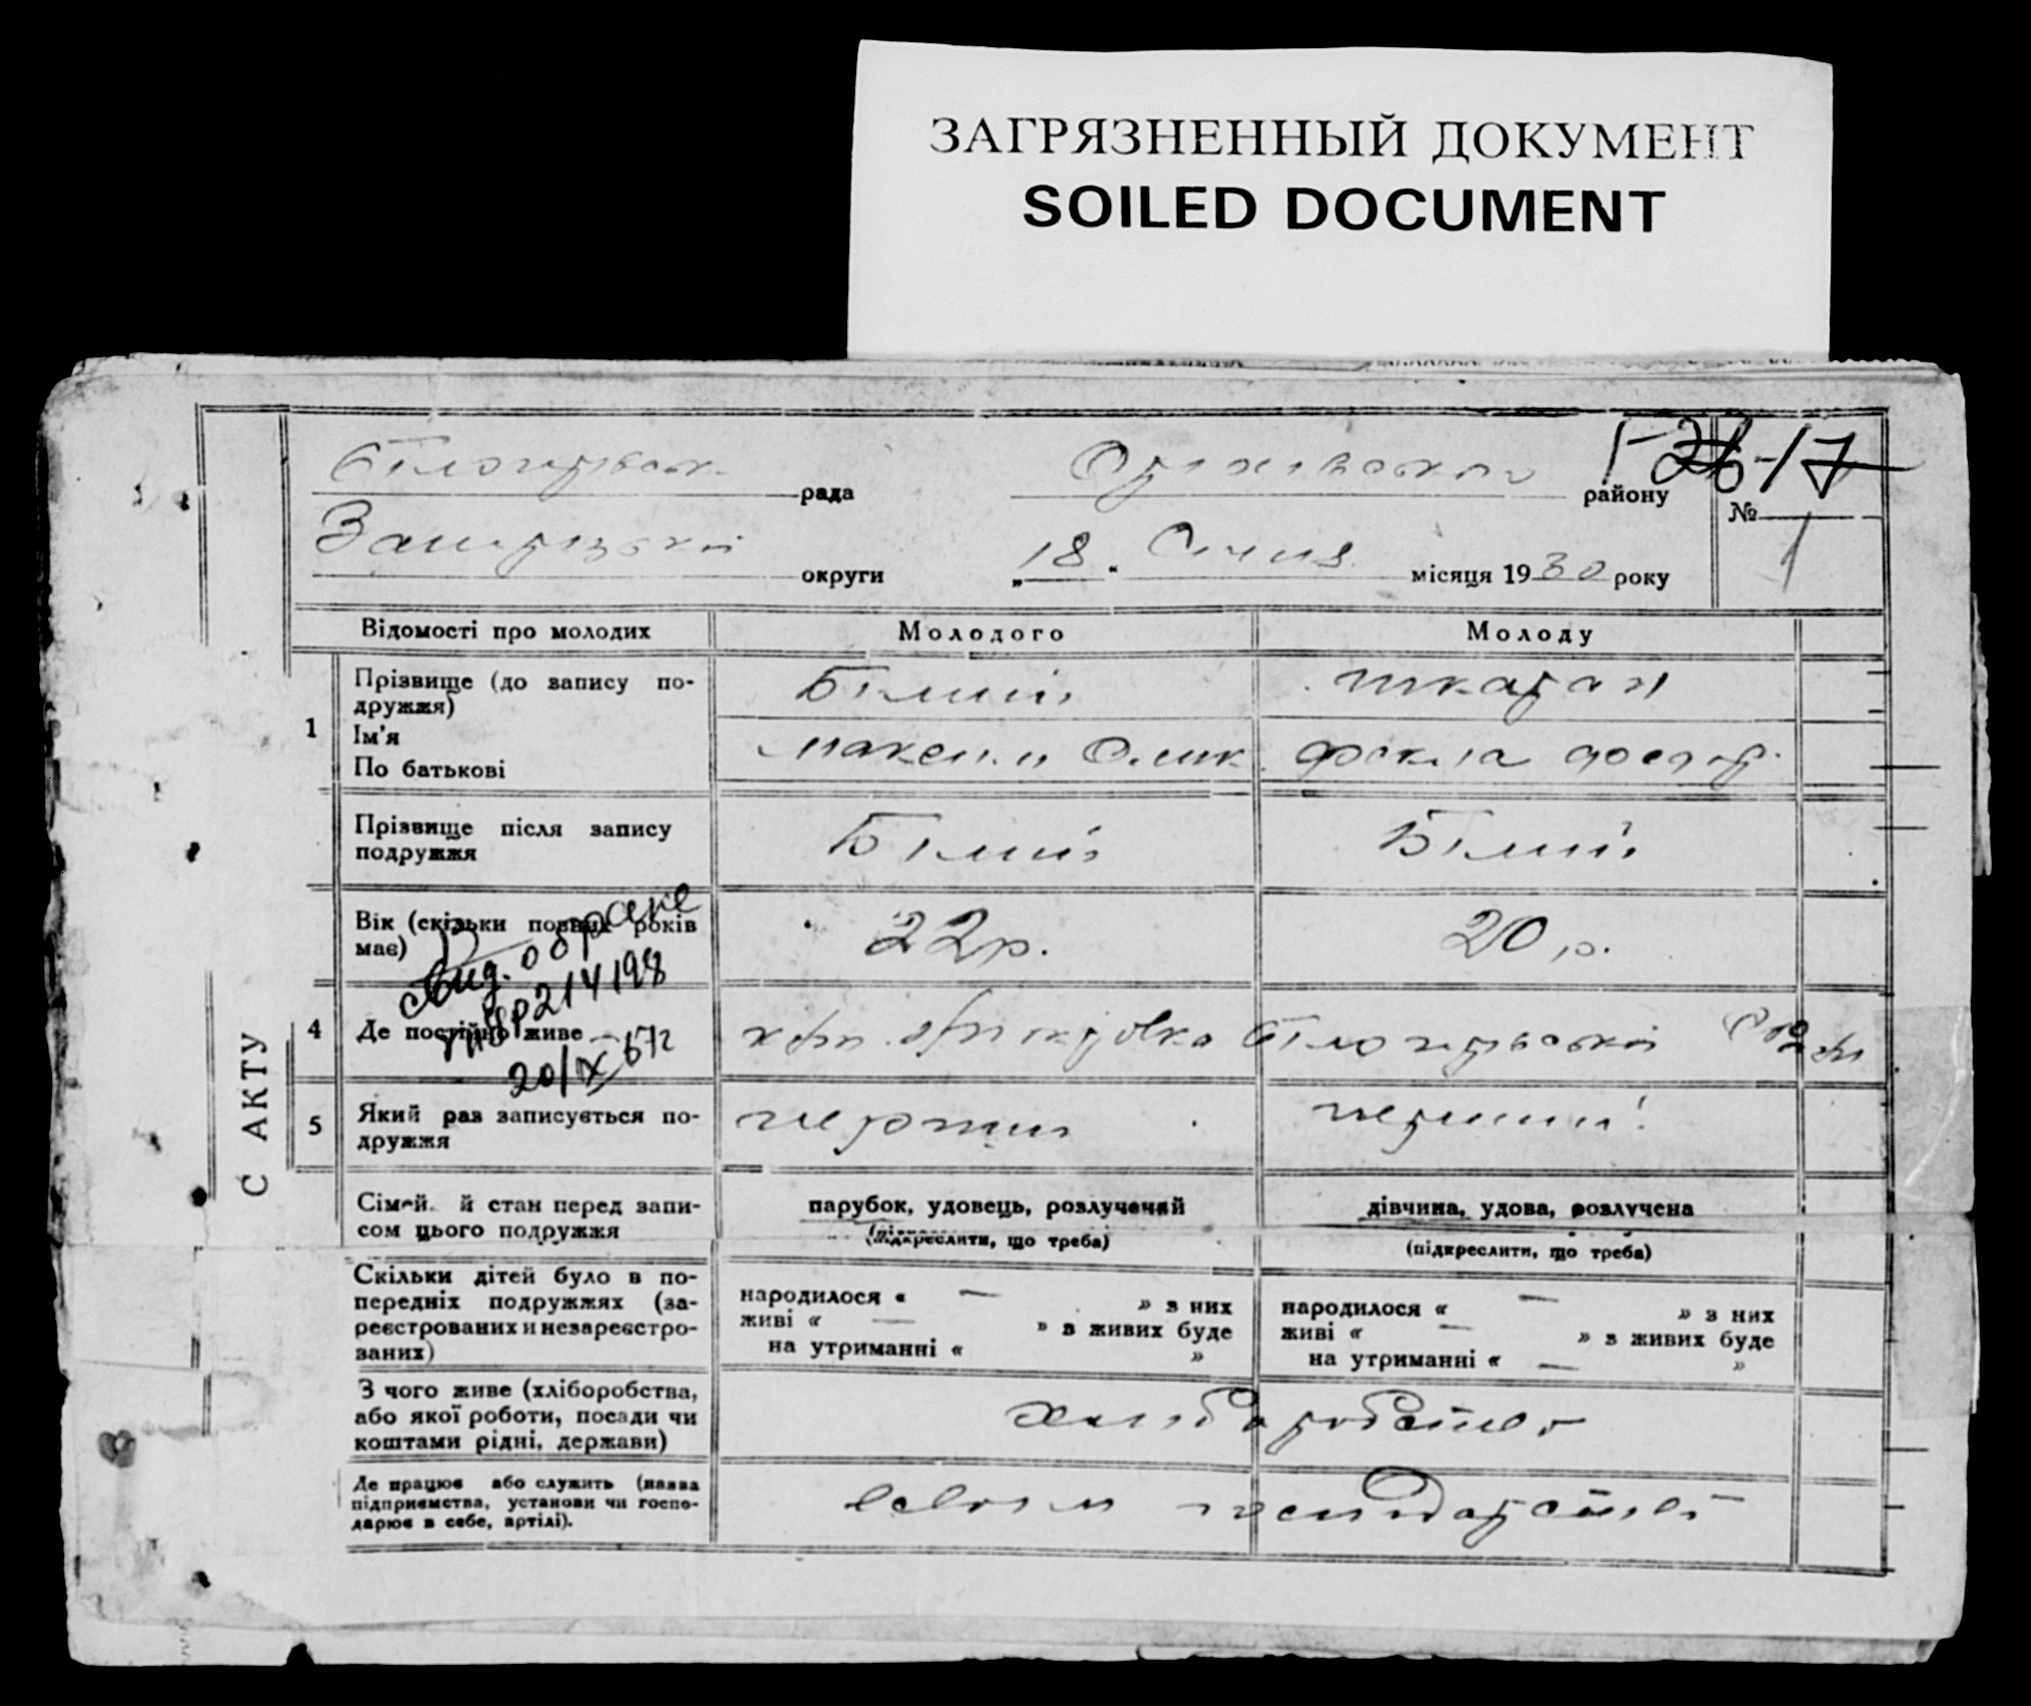 ЗАГРЯЗНЕННЫЙ ДОКУМЕНТ
SOILED DOCUMENT
Білогірська рада Оріхівського району
№ 1
Запорізької округи „18“ Січня місяця 1930 року
Відомості про молодих Молодого Молоду
1 Прізвище (до запису по-
дружжя) Білий Шкарган
Ім'я
По батькові Максим Фекла
Прізвище після запису
подружжя Білий Білий
Вік (скільки повних років
має) 22 р. 20 р.
Свид. о браке
214198
20/IX 67г
4 Де постійно живе Білогірської
5 Який раз записується по-
дружжя перший перший
С АКТУ
Сімей й стан перед запи-
сом цього подружжя
парубок, удовець, розлучений
(підкреслити, що треба)
дівчина, удова, розлучена
(підкреслити, що треба)
Скільки дітей було в по-
передніх подружжях (за-
реєстрованих и незареєстро-
ваних)
народилося « — » з них
живі « — » з живих буде
на утриманні « »
народилося « — » з них
живі « — » з живих буде
на утриманні « — »
З чого живе (хліборобства,
або якої роботи, посади чи
коштами рідні, держави)
хліборобство
Де працює або служить (назва
підприємства, установи чи госпо-
дарює в себе, артілі).
в своїм господарстві